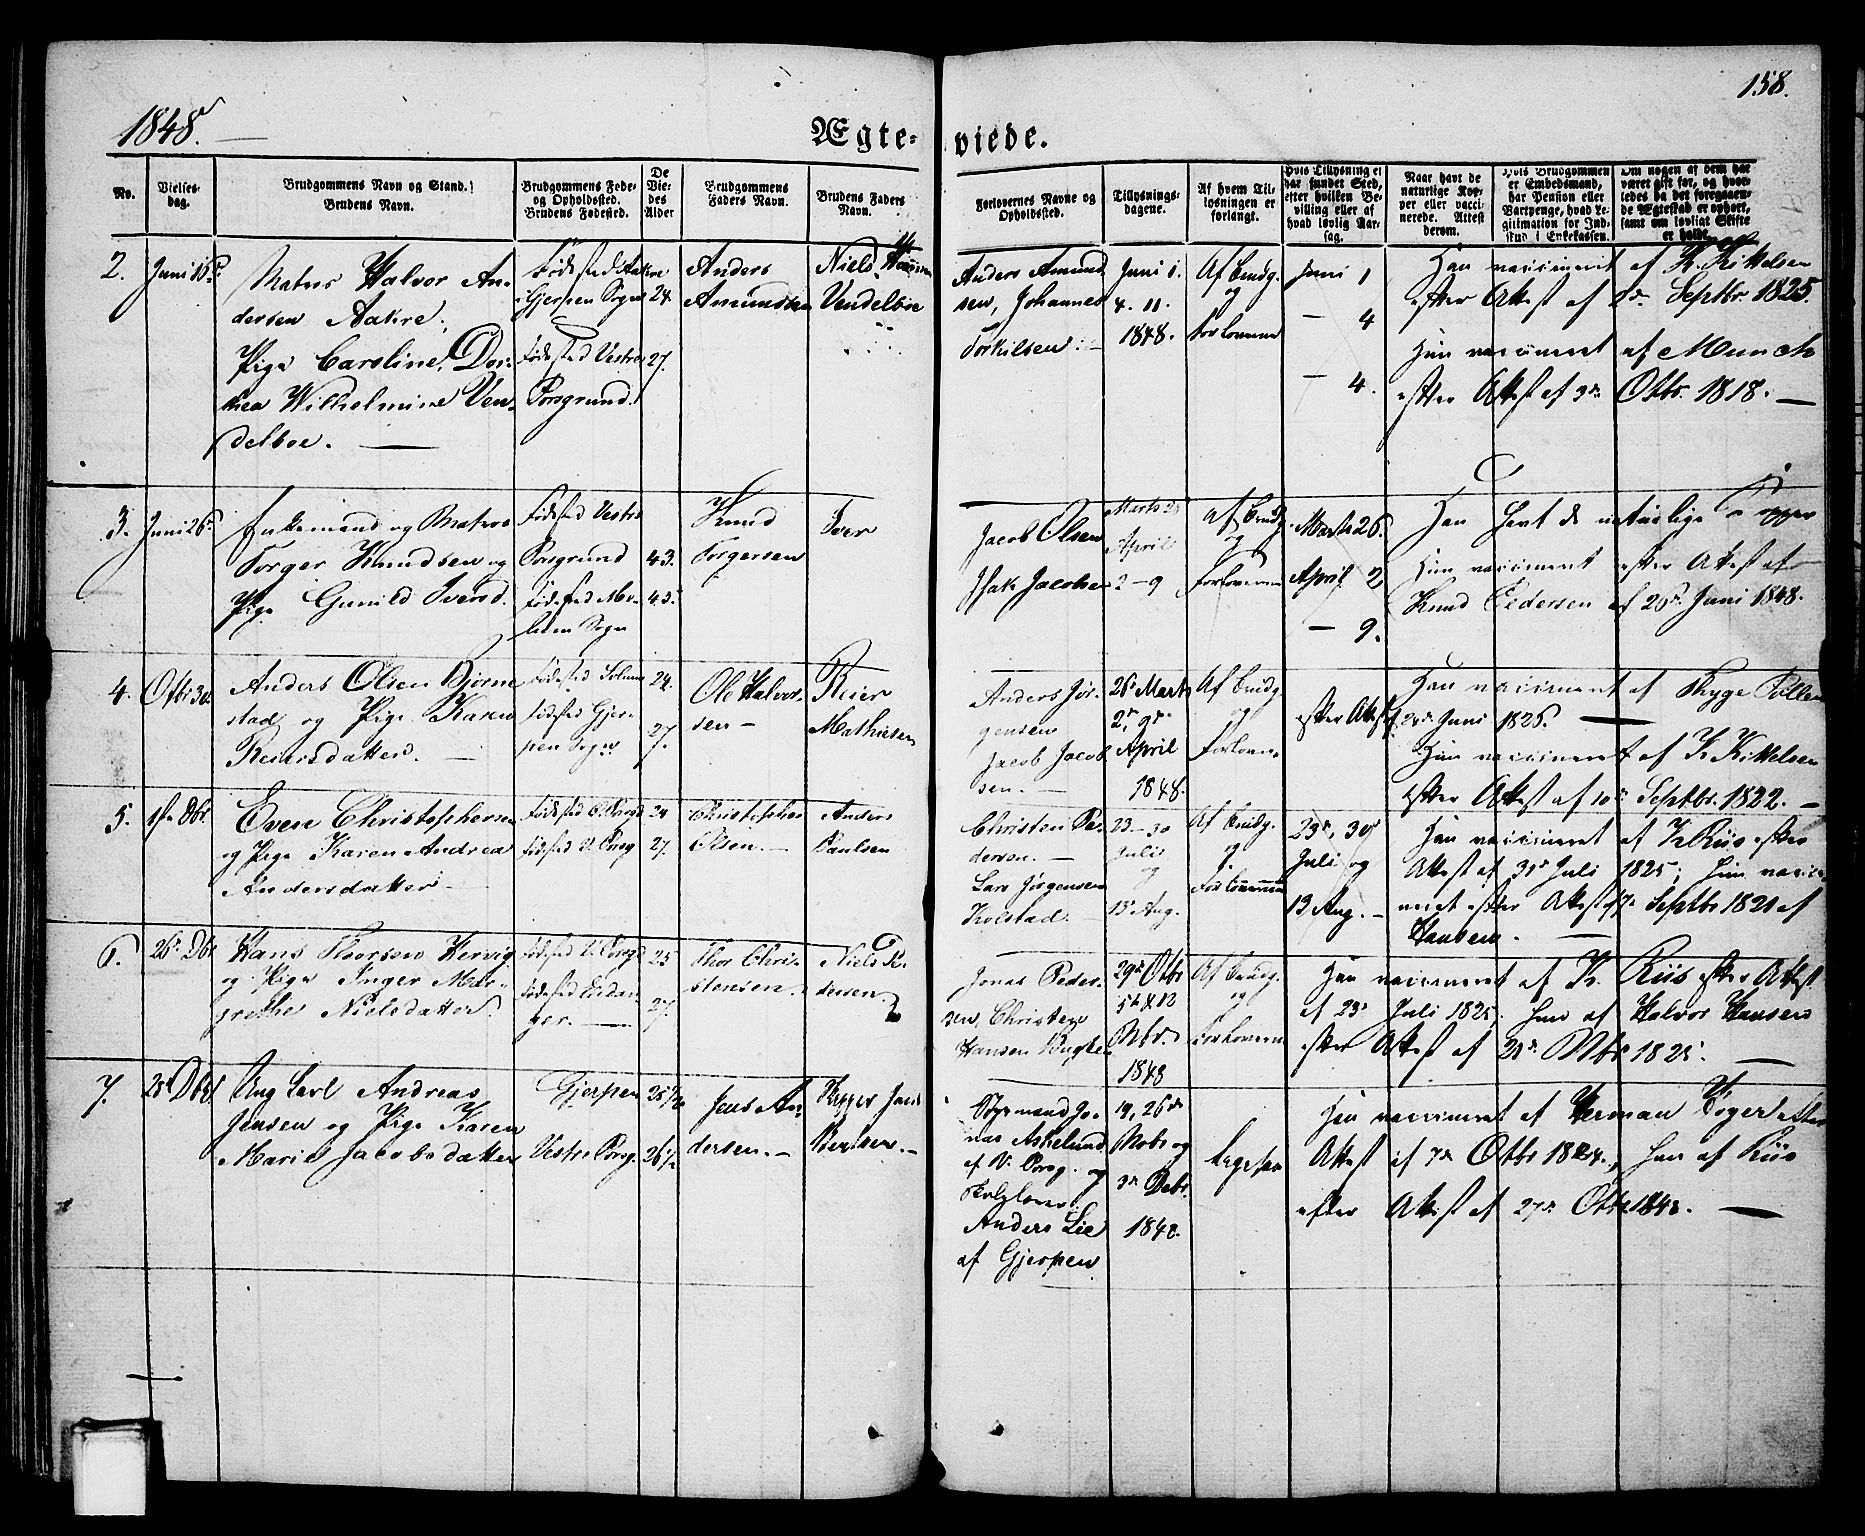 1848.
158.
Ægte- viede.
No.
Vielses-
dag.
Brudgommens Navn og Stand.
Brudens Navn.
Brudgommens Føde-
og Opholdsted.
Brudens Fødested.
De
Vie-
des
Alder
Brudgommens
Faders Navn.
Brudens Faders
Navn.
Forlovernes Navne og
Opholdsted.
Tillysnings-
dagene.
Af hvem Til-
lysningen er
forlangt.
Hvis Tillysning ei
har fundet Sted,
efter hvilken Be-
villing eller af
hvad lovlig Aar-
sag.
Naar havt de
naturlige Kop-
per eller vacci-
nerede. Attest
derom.
Hvis Brudgommen
er Embedsmand,
har Pension eller
Vartpenge, hvad Le-
gitimation for Ind-
skud i Enkekassen.
Om nogen af dem har
været gift før, og hvor-
ledes da det foregaaen-
de Ægteskab er ophørt,
samt om lovligt Skifte
er holdt.
2.
Matros Halvor An-
dersen Aakre,
Pige Caroline Dor-
thea Wilhelmine Ven-
delboe.
Fødested Aakre
i Gjerpen Sogn
Fødested Vestre
Porsgrund.
24.
27.
Anders
Amundsen
Niels
Vendelboe
Anders Amund-
sen, Johannes
Torkilsen.
Juni 1.
4. 11.
1848.
Af Brudg.
og
Forloverne
Juni 1
4
4.
Han vaccineret af K. Kittelsen
efter Attest af Septbr 1825.
Hun vaccineret af Munch
efter Attest af 3de Otbr. 1818.
3.
Juni 26
Enkemand og Matros
Torger Knudsen og
Pige Gunild Iversd.
Fødested Vestre
Porsgrund
Fødested
Sogn
43.
43.
Knud
Torgersen
Iver
Jacob Olsen
Isak Jacobsen
Marts 26
April
2 - 9
Af Brudg.
og
Forloverne
Marts 26.
April 2
9.
Han havt de naturlige Kopper
Hun vaccineret efter Attest af
Knud Pedersen af 20de Juni 1848.
4.
Otbr 30
Anders Olsen Bjørn-
stad og Pige Karen
Reiersdatter.
Fødested Solum
Fødested Gjer-
pen Sogn
24.
27.
Ole Halvor-
sen
Reier
Mathiesen
Anders Jør-
gensen
Jacob Jacob-
sen.
26de Marts
2den 9de
April
1848.
Af Brudg.
og
Forlovere
efter Attest
Han vaccineret af Thyge
Juni 1826.
Hun vaccineret af K. Kittelsen
efter Attest af 10de Septbr. 1822.
5.
1ste Dbr.
Even Christophersen
og Pige Karen Andrea
Andersdatter
Fødested Ø. Porsg
Fødested V. Porsg
24
27.
Christopher
Olsen.
Anders
Paulsen
Christen Pe-
dersen.
Lars Jørgensen
Kolstad.
23 - 30
Juli
og
13 Aug.
Af Brudg.
og
Forloverne
23de, 30de
Juli og
13 Aug.
Han vaccineret af K. Riis efter
Attest af 31de Juli 1825; Hun vacci-
neret efter Attest af 17de Septbr 1820 af
Hansen.
6.
26de Dbr
Hans Thorsen Hervig
og Pige Inger Mar-
grethe Nielsdatter.
Fødested V. Porsgd
Fødested Eidan-
ger.
25
27.
Thor Chri-
stensen.
Niels Pe-
dersen.
Jonas Peder-
sen, Christen
Hansen
29de Otbr
5te & 12
Nbr.
1848
Af Brudg.
og
Forloverne
Han vaccineret af K. Riis efter Attest
af 23de Juli 1825. Hun af Halvor Hansen
efter Attest af Nbr. 1825.
7.
28 Dbr
Ung Carl Andreas
Jensen og Pige Karen
Marie Jacobsdatter
Gjerpen
Vestre Porsg.
26½
Jens An-
dersen.
Jacob
Berntsen.
Jo-
nas Askelund
af V. Porsg. og
Anders Lie
af Gjerpen
19, 26de
Novbr og
3de Debr.
1848.
Ligesaa
Han vaccineret af Herman efter
Attest af 7de Otbr 1824, Hun af Riis
efter Attest af 27de Otbr 1848.